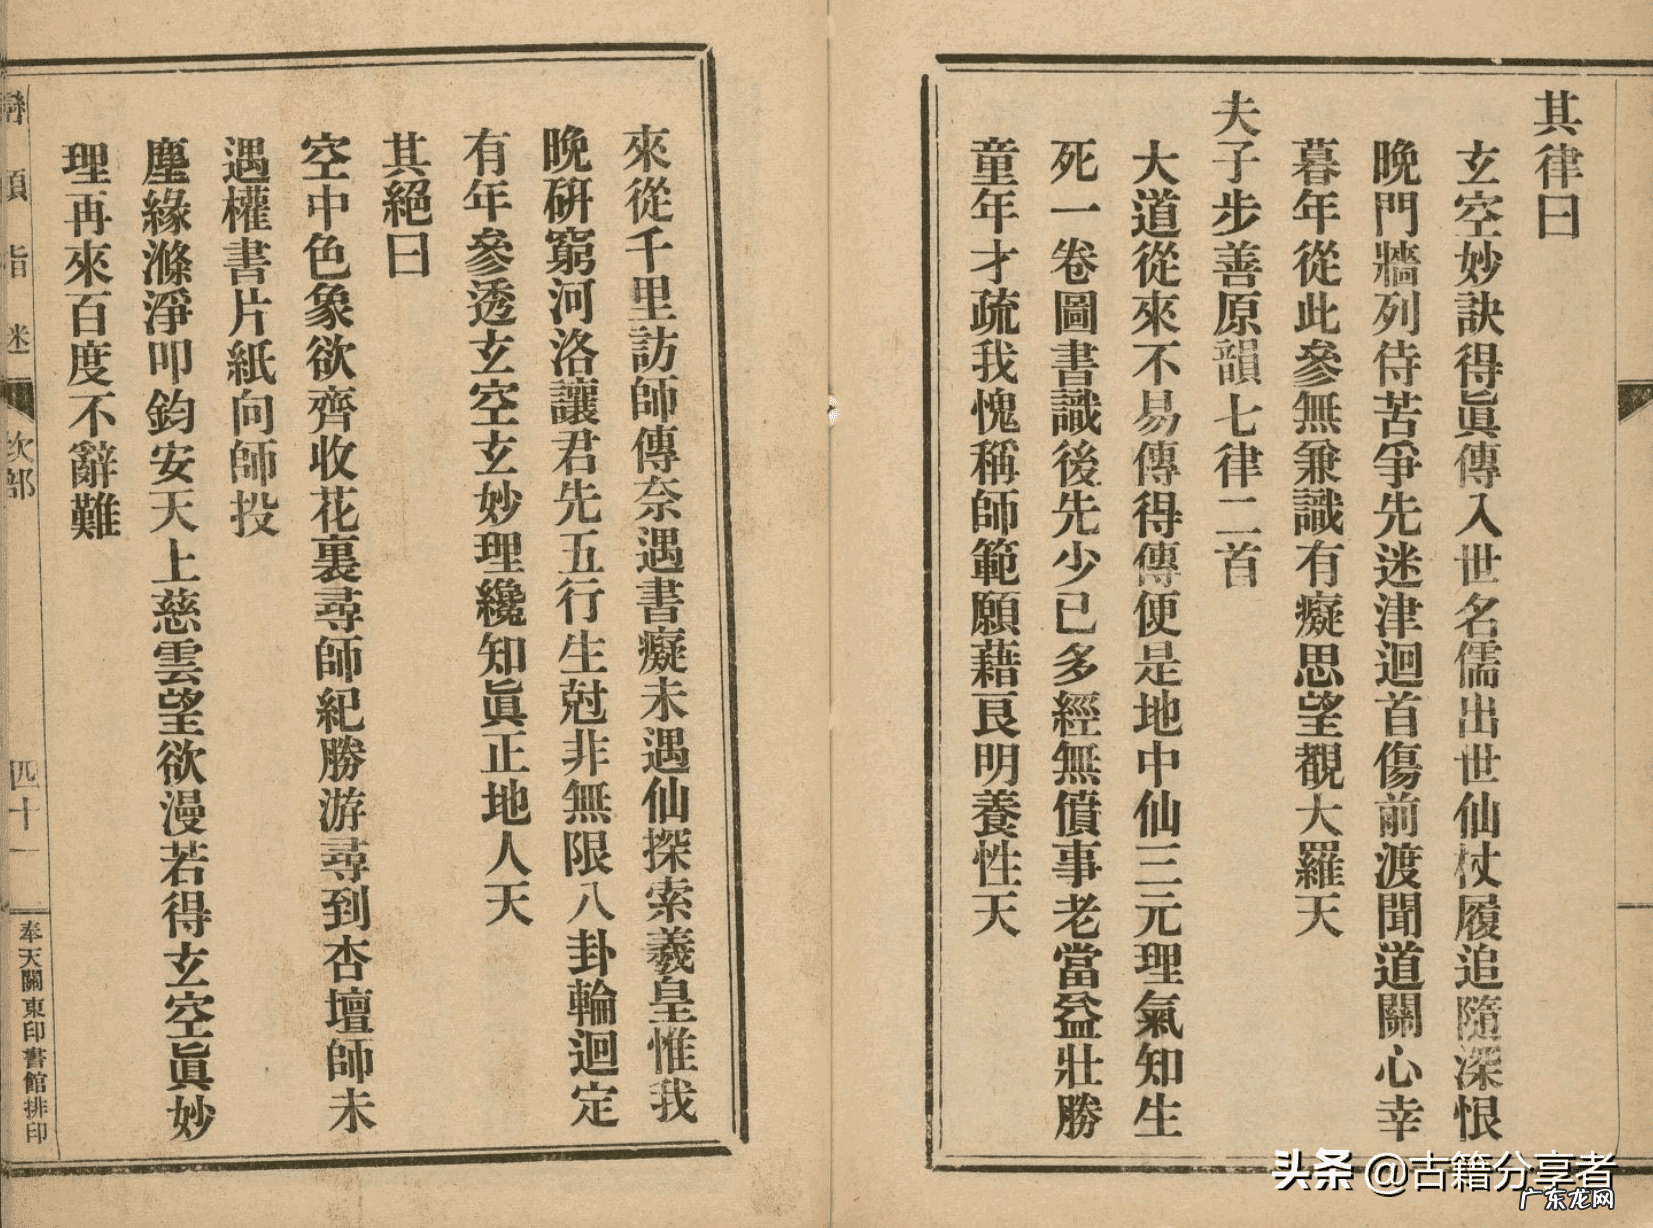 其律曰
玄空妙訣得眞傳入世名儒出世仙杖履追隨深恨
晚門牆列侍苦爭先迷津迴首傷前渡聞道關心幸
暮年從此參無兼識有癡思望覩大羅天
夫子步善原韻七律二首
大道從來不易傳得傳便是地中仙三元理氣知生
死一卷圖書識後先少已多經無債事老當益壯勝
童年才疏我愧稱師範願藉艮明養性天
來從千里訪師傳奈遇書癡未遇仙探索羲皇惟我
晚研窮河洛讓君先五行生尅非無限八卦輪迴定
有年參透玄空玄妙理纔知眞正地人天
其絕曰
空中色象欲齊收花裏尋師紀勝游尋到杏壇師未
遇權書片紙向師投
塵緣滌淨叩鈞安天上慈雲望欲漫若得玄空眞妙
理再來百度不辭難
指迷
次部
四十一
奉天關東印書館排印
头条 @古籍分享者
广东龙网